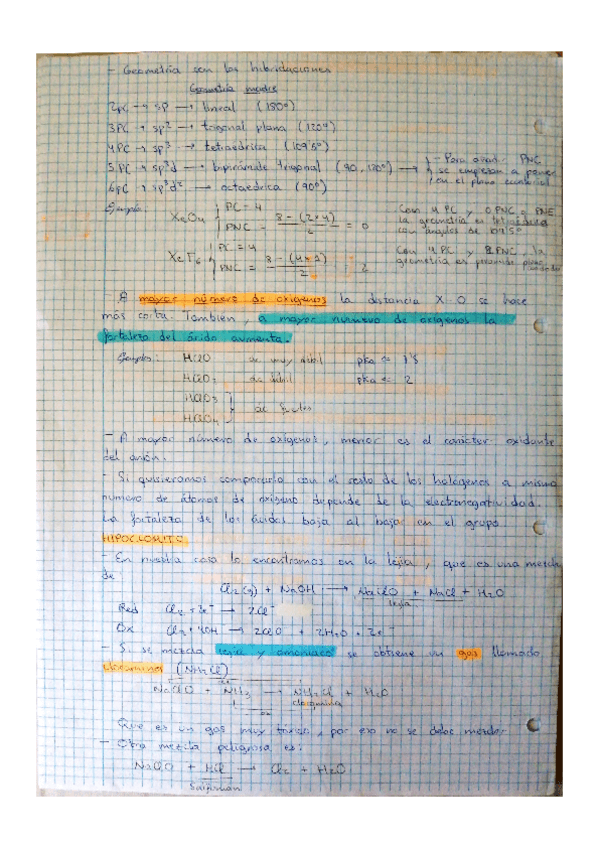 - Geometría son las hibridaciones
Geometría madre
2PC → sp → lineal (180º)
3PC → sp² → trigonal plana (120º)
4PC → sp³ → tetraédrica (109'5º)
5PC → sp³d → bipirámide trigonal (90, 120º) → - Para añadir PNC se empiezan a poner en el plano ecuatorial
6PC → sp³d² → octaédrica (90º)
Ejemplo: XeO4 PC = 4 PNC = 8 - (2×4) / 2 = 0 Con 4 PC y 0 PNC = PNE la geometría es tetraédrica con ángulos de 109'5º
PC = 4 PNC = 8 - (4×1) / 2 2 Con 4 PC y 2 PNC la geometría es
- A mayor número de oxígenos la distancia X-O se hace
más corta. También, a mayor número de oxígenos la
fortaleza del ácido aumenta.
Ejemplos: HClO ac muy débil pKa ≈ 7'5
HClO2 ac débil pKa ≈ 2
HClO3
HClO4 ac fuertes
- A mayor número de oxígenos, menor es el carácter oxidante
del anión.
- Si quisiéramos compararlo con el resto de los halógenos a mismo
número de átomos de oxígeno depende de la electronegatividad.
La fortaleza de los ácidos baja al bajar en el grupo
HIPOCLORITO
- En nuestra casa lo encontramos en la lejía, que es una mezcla
de
Cl2(g) + NaOH → NaClO + NaCl + H2O
lejía
Red Cl2 + 2e⁻ → 2Cl⁻
Ox Cl2 + 4OH → 2ClO + 2H2O + 2e⁻
- Si se mezcla lejía y amoniaco se obtiene un gas llamado
cloramina (NH2Cl)
NaClO + NH3 → NH2Cl + H2O
cloramina
Que es un gas muy tóxico, por eso no se debe mezclar
- Otra mezcla peligrosa es:
NaClO + HCl → Cl2 + H2O
Salfumán